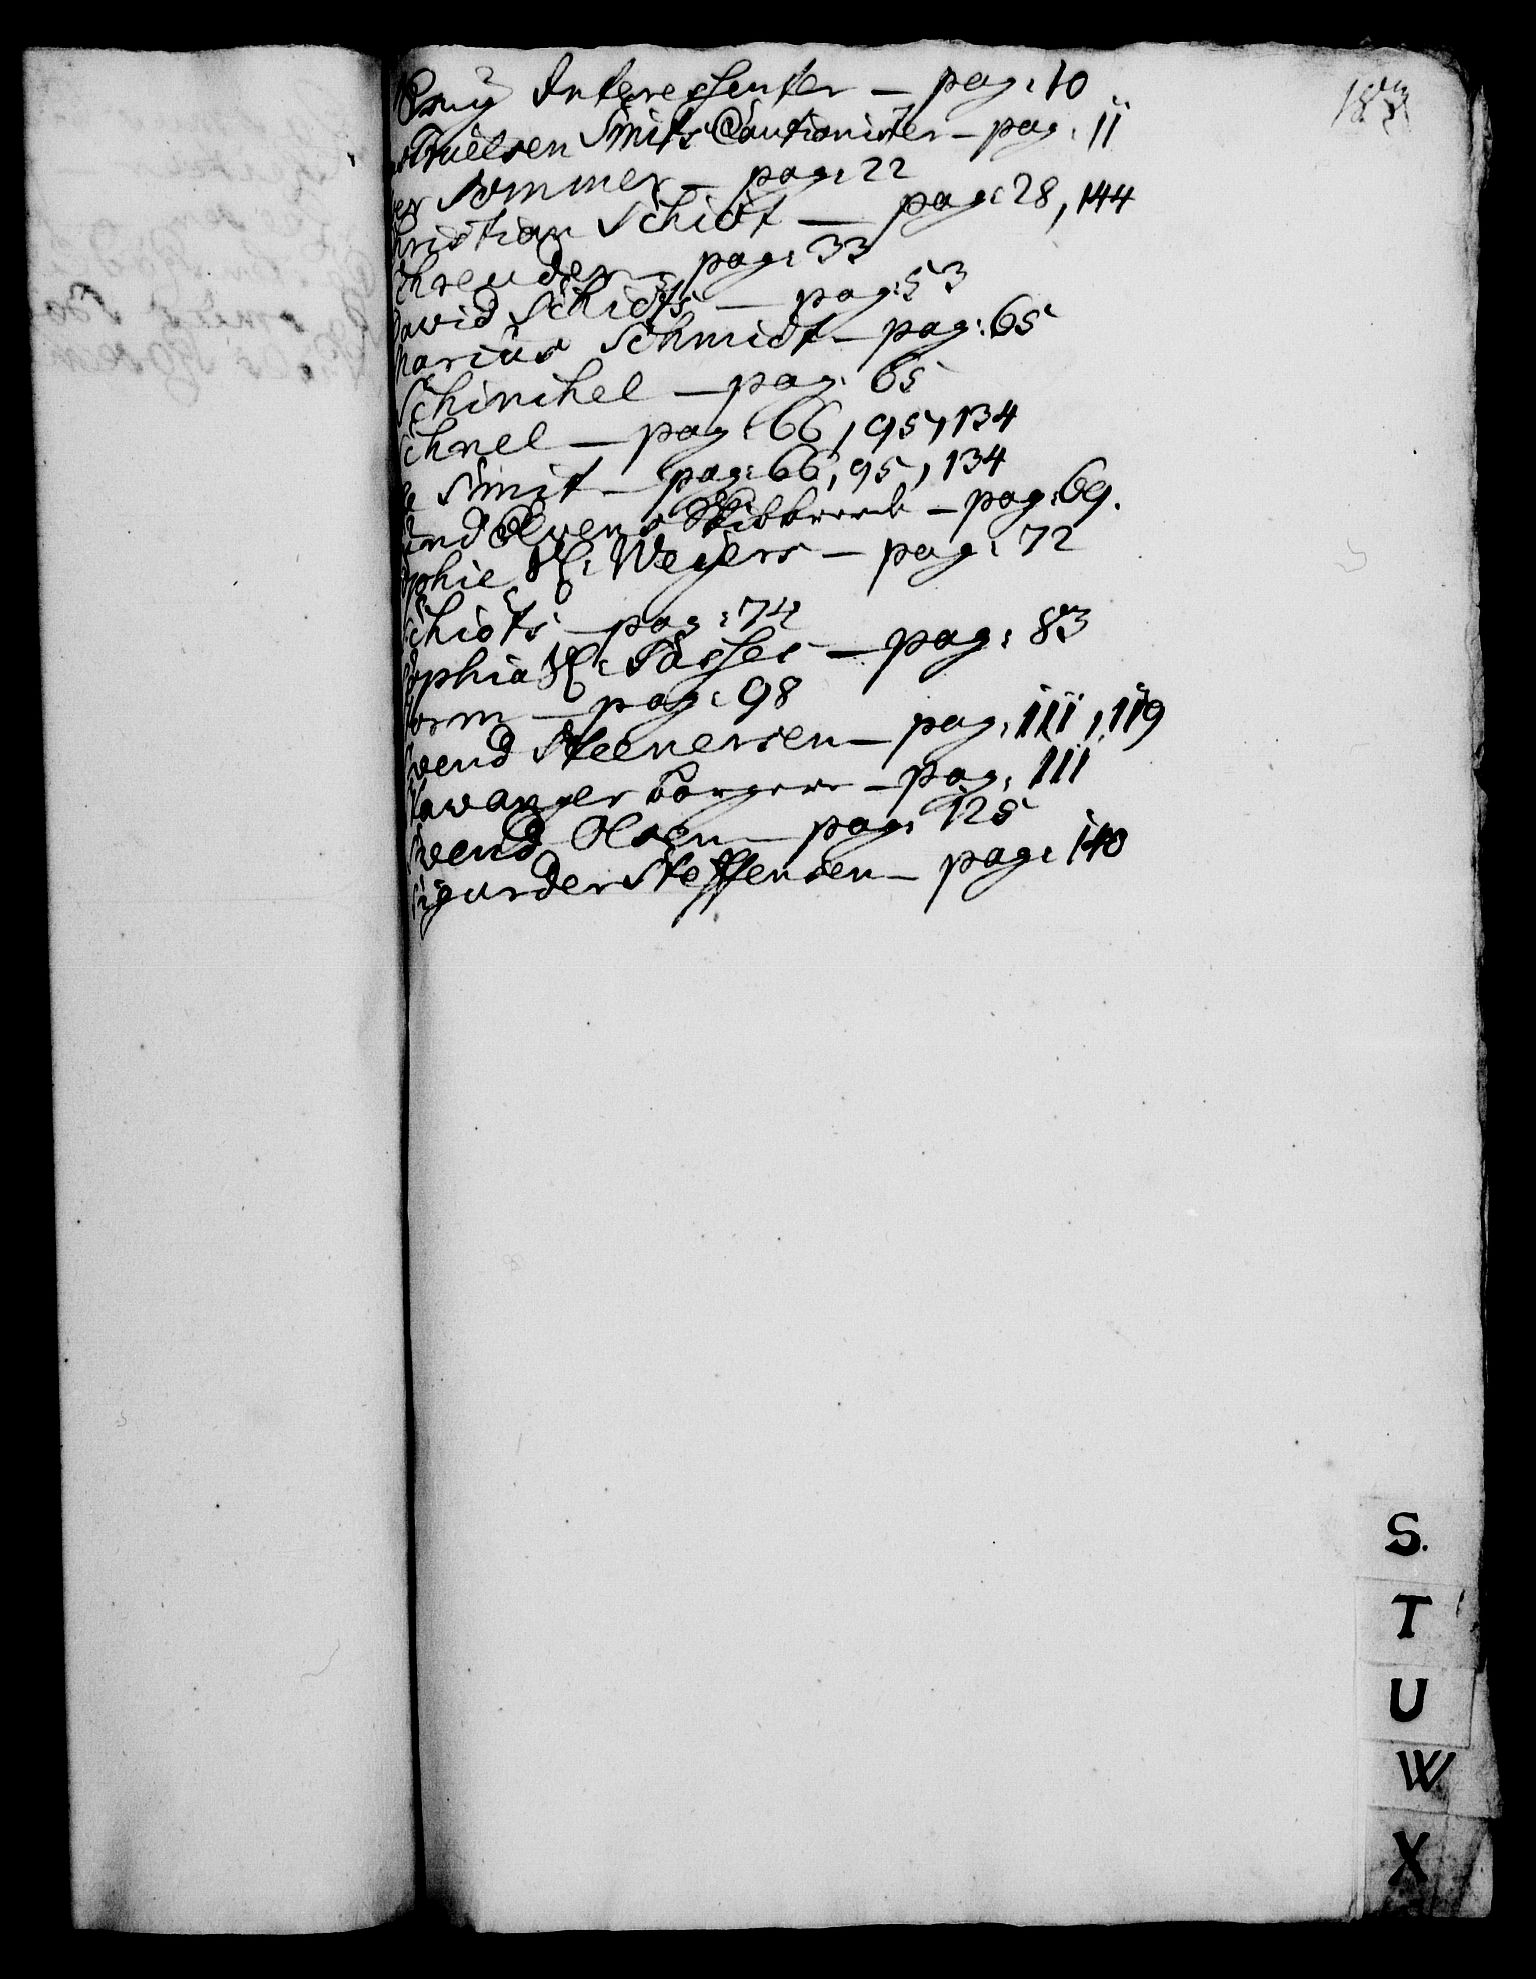 Interessenter — pag: 10
Truelsen Smits Cautionister — pag: 11
Sommer — pag: 22
hristian Schiöt — pag: 28, 144
chreuder — pag: 33
David Schiöts — pag: 53
harius Schmidt — pag: 65
Schinchel — pag: 65
chnel — pag: 66, 95, 134
Smit — pag: 66, 95, 134
pag: 69.
ophie H: Weyers — pag: 72
chiöts — pag: 74
ophia H: — pag: 83
orm — pag: 98
Svend Steenersen — pag: 111, 119
Stavanger borgere — pag: 111
Svend Olsen — pag: 125
Sigurder Steffensen — pag: 140
S.
T
U
W
X